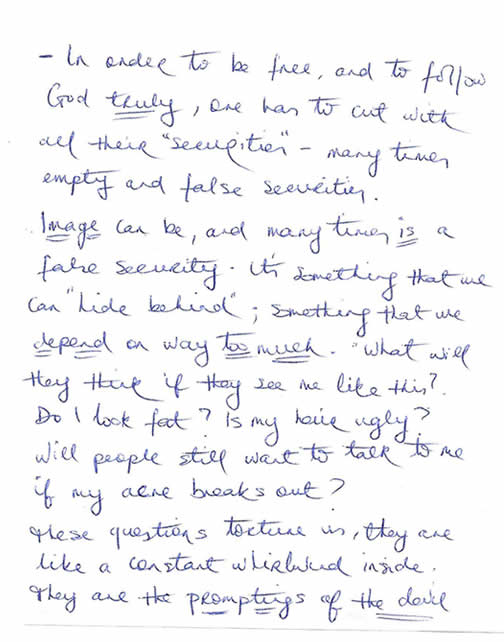 - In order to be free, and to follow
God truly, one has to cut with
all their "securities" - many times
empty and false securities.
Image can be, and many times is a
false security. It's something that we
can "hide behind"; something that we
depend on way too much. "What will
they think if they see me like this?
Do I look fat? Is my hair ugly?
Will people still want to talk to me
if my acne breaks out?
These questions torture us, they are
like a constant whirlwind inside.
They are the promptings of the devil